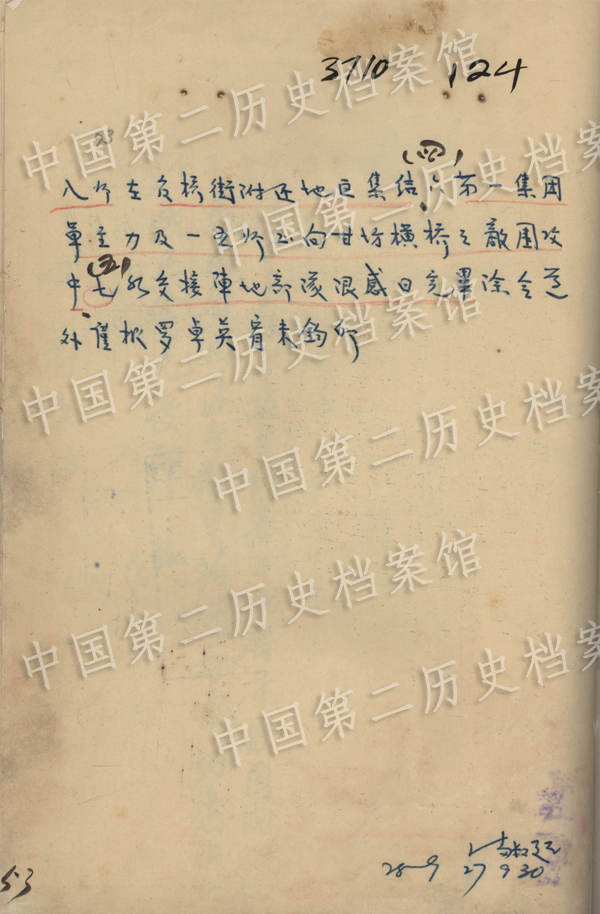 3710 124
23
(四)
八师在交桥街附近地区集结六第一集团
軍主力及一五师正向甘坊横桥之敵围攻
中(五)七水交接陣地部隊限感日完畢除令遵
外谨
罗卓英
28-9 27 9 30
53
中国第二历史档案馆
中国第二历史档案馆
中国第二历史档案馆
中国第二历史档案馆
中国第二历史档案馆
中国第二历史档案馆